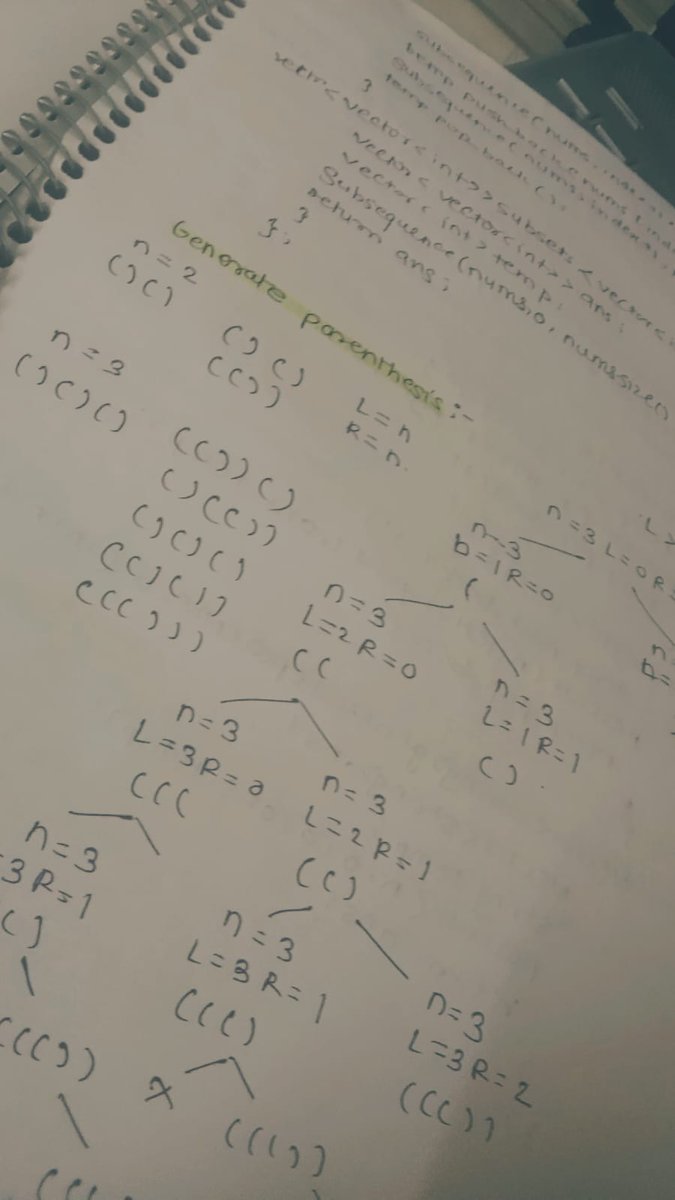 subsequence(nums, index
temp.push_back(nums[ind
subsequence(nums, index+1,
temp.pop_back();
}
vector<vector<int>> subsets <vector<
vector<vector<int>> ans;
vector<int> temp;
Subsequence(nums, 0, nums.size()
return ans;
}
};
Generate parenthesis :-
n=2
()()
()()
(())
L=n
R=n
n=3
()()()
(())()
()(())
()()()
(()())
((()))
n=3 L=0 R=
n=3
b=1 R=0
(
n=3
L=2 R=0
((
n=3
L=1 R=1
()
n=3
L=3 R=0
(((
n=3
L=2 R=1
(()
n=3
3 R=1
()
n=3
L=3 R=1
((()
n=3
L=3 R=2
((())
((())
x
((())
(((